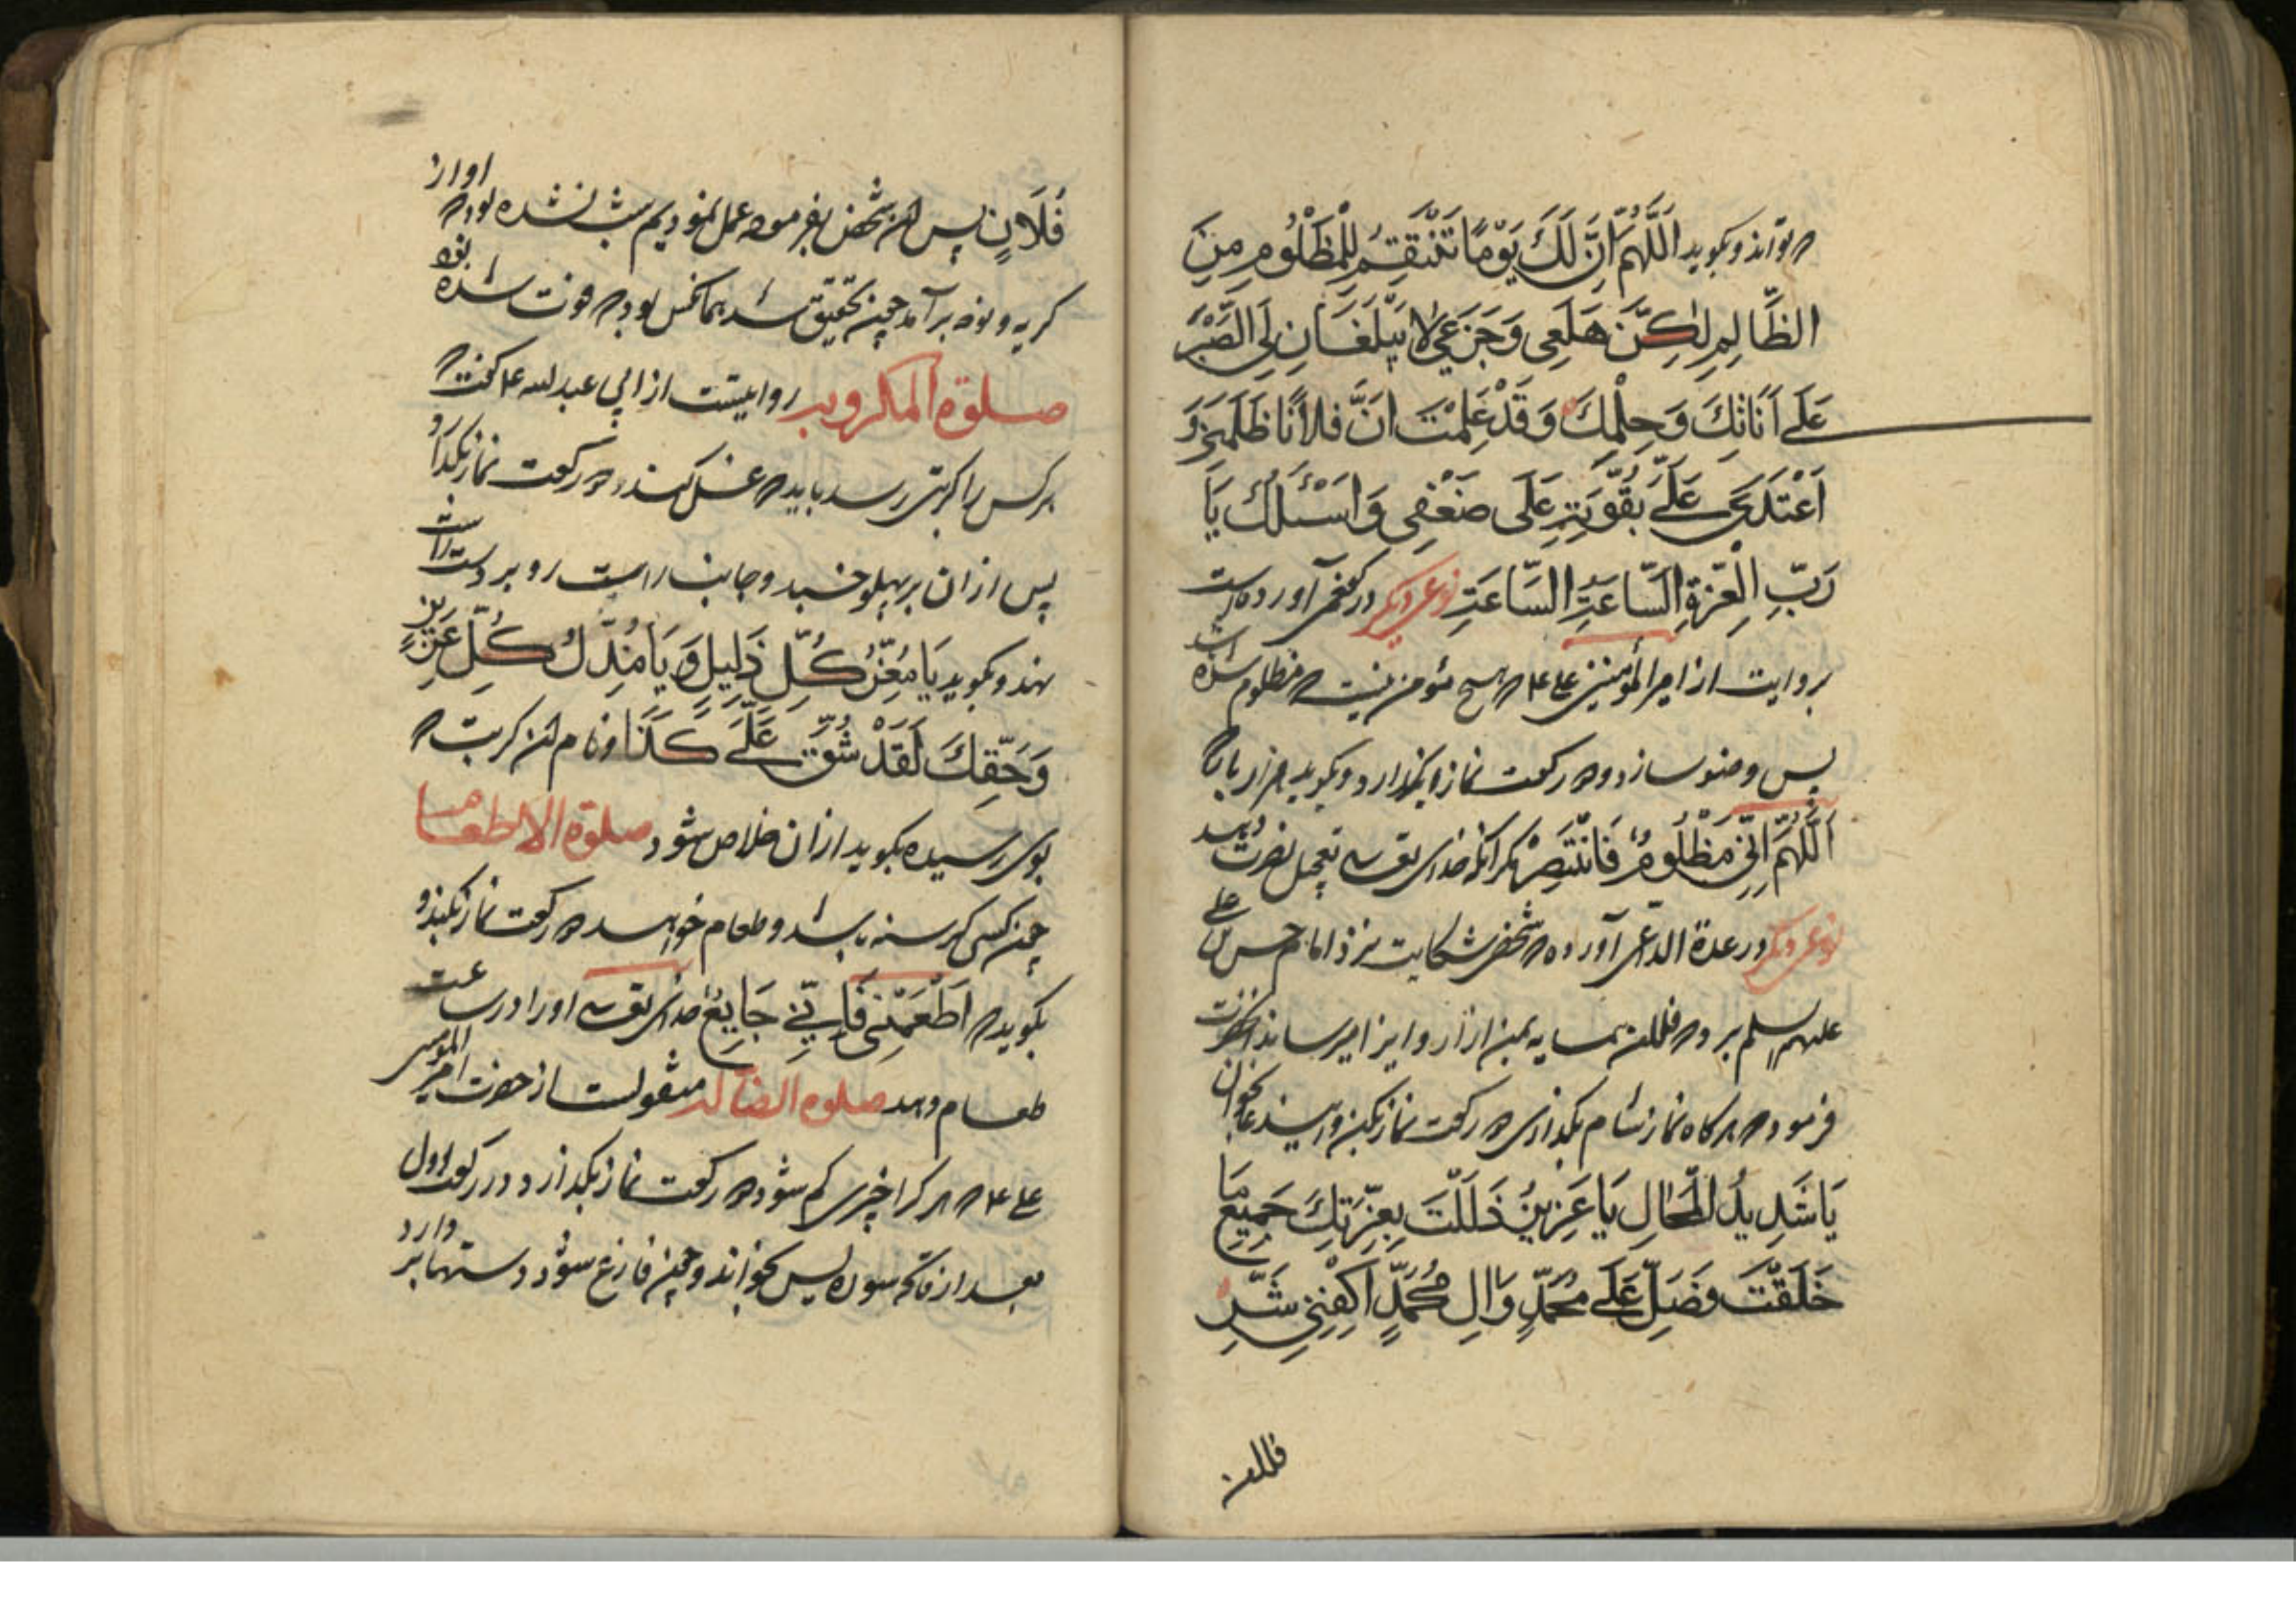 که تواند و بکوید اَللّهُمَّ اِنَّ لَكَ يَوْمًا تَنْتَقِمُ لِلْمَظْلُومِ مِنَ
الظَّالِمِ لٰكِنَّ هَلَعِى وَجَزَعِى لا يَبْلُغَانِ لِىَ الصَّبْرَ
عَلٰى اَنَاتِكَ وَحِلْمِكَ وَقَدْ عَلِمْتَ اَنَّ فلانًا ظَلَمَنِى وَ
اَعْتَدَى عَلَىَّ بِقُوَّتِهِ عَلَى ضَعْفِى وَاَسْئَلُكَ يَا
رَبِّ الْعِزَّةِ السَّاعَةَ السَّاعَةَ نوعدیکر در کفعمی آورده است
بروایت از امیر المؤمنین علی ع م که هیچ مؤمن نیست که مظلوم شده
پس وضو سازد و دو رکعت نماز بگذارد و بکوید هزار بار
اَللّهُمَّ اِنِّى مَظْلُومٌ فَانْتَصِرْ مکر انکه خدای تعالی تعجیل نصرت دهد
نوعدیکر در عدة الداعی آورده که شخصی شکایت نزد امام حسن بن علی
علیهم السلم برد که فلان همسایه بمن ازار و ایزا میرساند انحضرت
فرمود که هرکاه نماز شام بکذاری دو رکعت نماز بکن و این دعا بخوان
يَا شَدِيدَ المِحَالِ يَا عَزِيزُ ذَلَّلْتَ بِعِزَّتِكَ جَمِيعَ مَا
خَلَقْتَ وَصَلِّ عَلَى مُحَمَّدٍ وَالِ مُحَمَّدٍ اَكْفِنِى شَرِّ
فلان
فَلَانٍ پس ان شخص بفرموده عمل نمودیم شب نشده بود که اواز
کریه و نوحه برآمد چون تحقیق شد همانکس بود که فوت شده بود
صلوة المکروب روایتست از ابی عبد الله ع م کفت که
هرکس را کربتی رسد باید که غسل کند و دو رکعت نماز بکذارد
پس از ان بر پهلو خسبد و جانب راست رو بر دست راست
نهد و بکوید يَا مُعِزَّ كُلِّ ذَلِيلٍ وَ يَا مُذِلَّ كُلِّ عَزِيزٍ
وَحَقِّكَ لَقَدْ شُقَّ عَلَىَّ كَذَا و نام ان کربت که
بوی رسیده بکوید ازان خلاص شود صلوة الاطعام
چون کسی کرسنه باشد و طعام خواهد دو رکعت نماز بکند و
بکوید که اَطْعِمْنِى فَاِنِّى جَايِعٌ خدای تعالی اورا در ساعت
طعام دهد صلوة الضالة منقولست از حضرت امیر المومنین
علی ع م که هر کرا چیزی کم شود دو رکعت نماز بکذارد و در رکعت اول
بعد از فاتحه سوره یس بخواند و چون فارغ شود دستها بر دارد